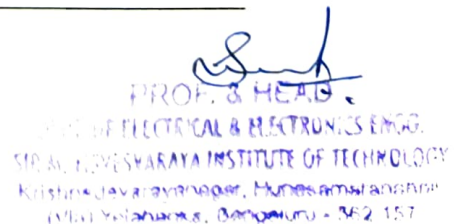 PROF. & HEAD
OF ELECTRICAL & ELECTRONICS ENGG.
SIR M. VISVESVARAYA INSTITUTE OF TECHNOLOGY
Krishnadevarayanagar, Hunasamaranahalli
(Via) Yelahanka, Bengaluru - 562 157